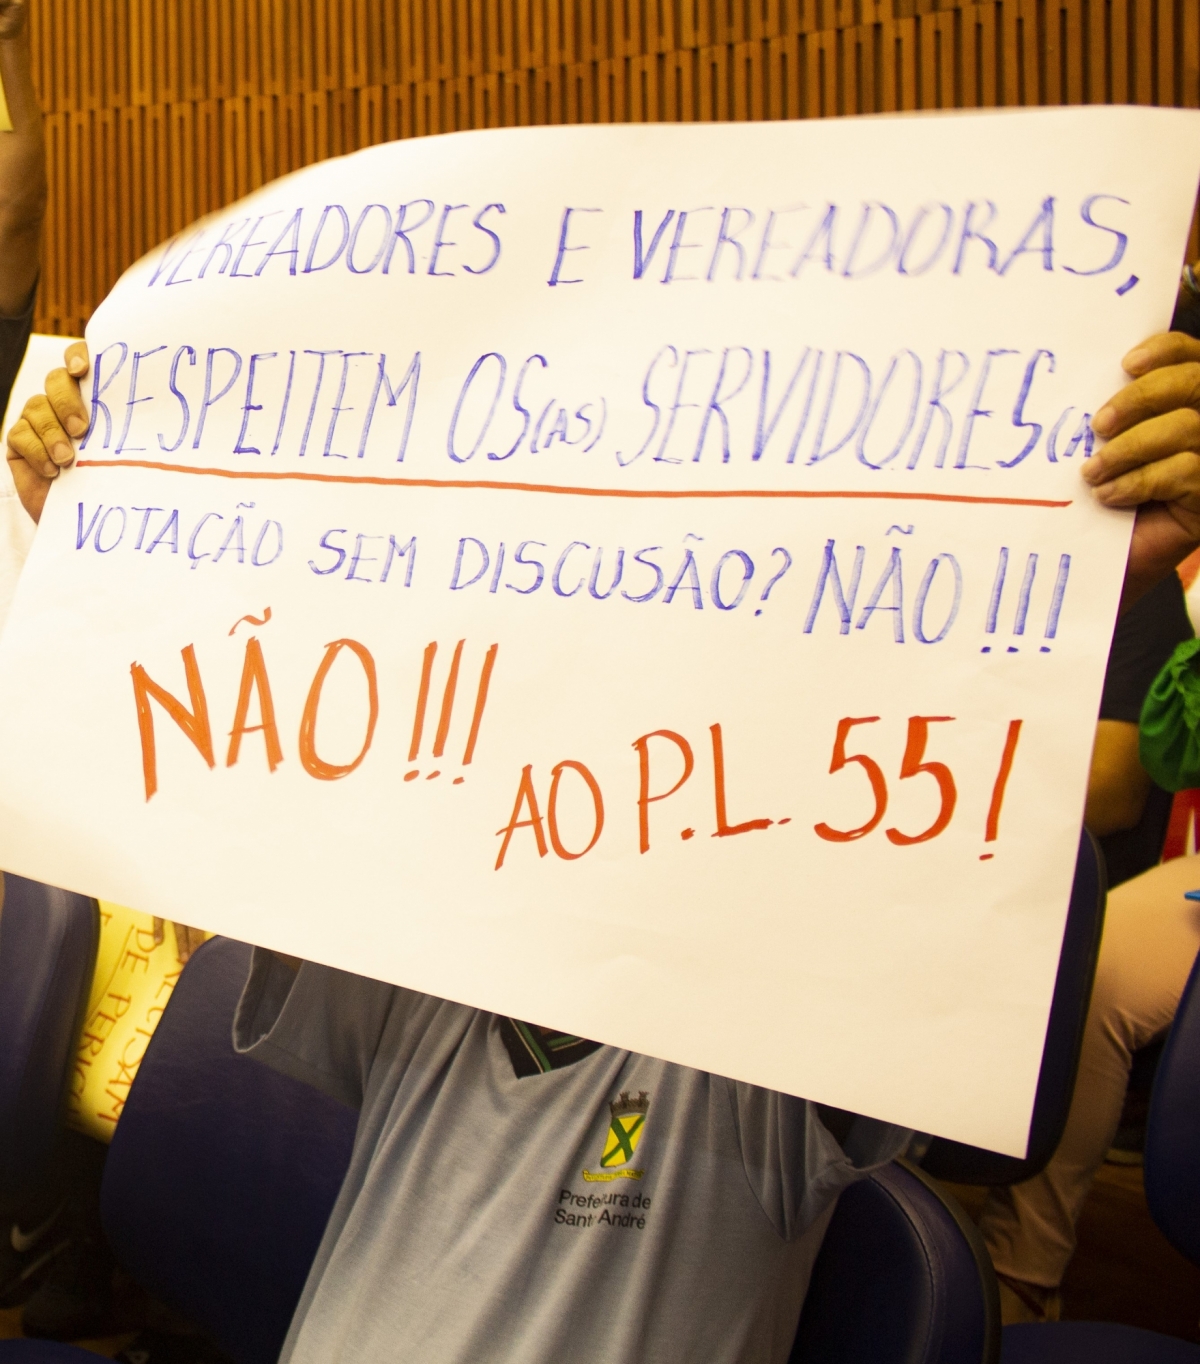 VEREADORES E VEREADORAS,
RESPEITEM OS(AS) SERVIDORES(A
VOTAÇÃO SEM DISCUSÃO? NÃO!!!
NÃO!!!
AO P.L. 55!
DE PERIC
Prefeitura de
Santo André